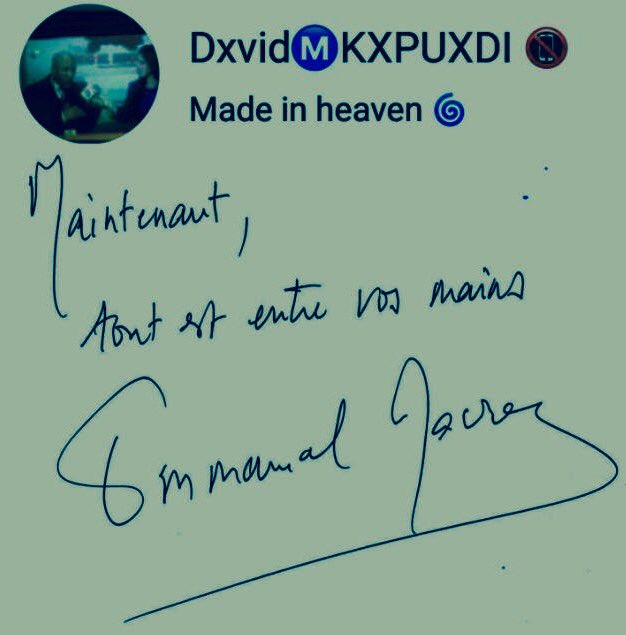 DxvidⓂ️KXPUXDI 📵
Made in heaven 🌀
Maintenant,
tout est entre vos mains
Emmanuel Macron